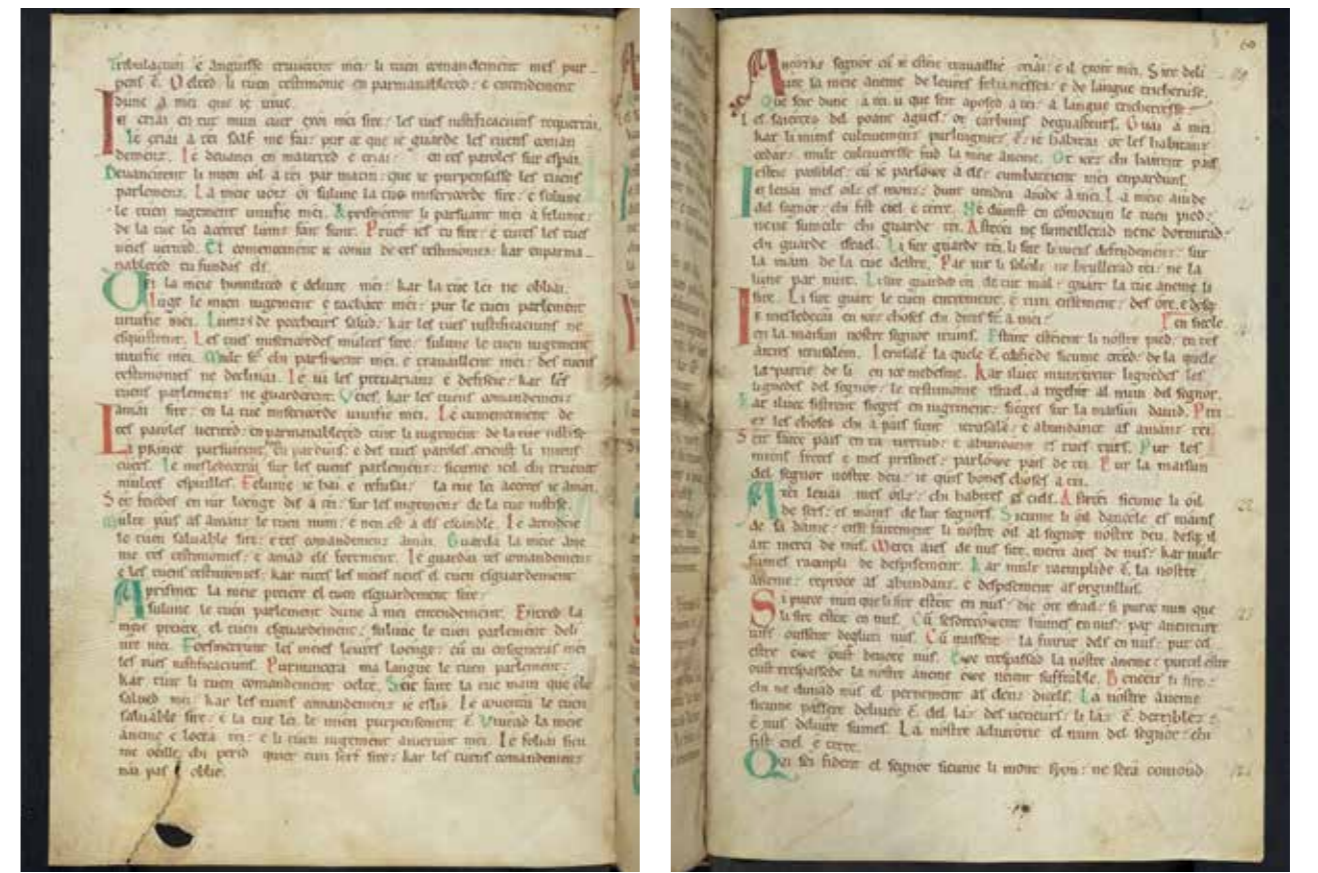 Tribulaciun e anguisse truverent mei: li tuen comandement mes pur
pens ē. Oelted li tuen testimonie en parmanabletед: e entendement
dune a mei que ie uiue.
Ie criai en tut mun cuer: oi mei sire: les tues iustificaciuns requerrai.
Ie criai a tei salf me fai: pur ce que ie guarde les tuens coman
demenz. Ie deuanci en maurted e criai: en tes paroles sur espai.
Deuancirent li mien oil a tei par matin: que ie purpensasse les tuens
parlemenz. La meie uoiz oi sulunc la tue misericorde sire: e sulunc
le tuen iugement uiuifie mei. Apresmerent li parsiuant mei a felunie:
de la tue lei acertes luinz fait sunt. Pruef ies tu sire: e tutes les tues
ueies uerited. Et comencement ie conui de tes testimonies: kar enparma
nableted tu fundas els.
la meie humilited e deliure mei: kar la tue lei ne obliai.
Iuge le mien iugement e rachate mei: pur le tuen parlement
uiuifie mei. Luinz de pecheurs salud: kar les tues iustificaciuns ne
esquistrent. Les tues misericordes multes sire: sulunc le tuen iugement
uiuifie mei. Mult chi parsiwent mei e trauaillent mei: des tuens
testimonies ne declinai. Ie ui les preuarianz e defiseie: kar les
tuens parlemenz ne guarderent. Veies kar les tuens comandemenz
amai sire: en la tue misericorde uiuifie mei. Le cumencement de
tes paroles uerited: en parmanableted tuit li iugement de la tue iustise
Li prince parsiuirent mei en parduns: e des tues paroles criemst li miens
cuers. Ie mesleecerai sur les tuens parlemenz: sicume icil chi truevat
multes espuilles. Felunie ie hai e refusai: la tue lei acertes ie amai.
Set feiedes en iur loenge dis a tei: sur les iugemenz de la tue iustise.
Multe pais as amanz le tuen num: e nen est a els escandle. Ie atendeie
le tuen saluable sire: e tes comandemenz amai. Guarda la meie ane
me tes testimonies: e amad els forment. Ie guardai tes comandemenz
e les tuens testimonies: kar tutes les meies ueies el tuen esguardement
Aprismet la meie preiere el tuen esguardement sire:
sulunc le tuen parlement dune a mei entendement. Entred la
meie preiere el tuen esguardement: sulunc le tuen parlement deli
ure mei. Forsmetrunt les meies leures loenge: cū tu enseigneras mei
les tues iustificaciuns. Purnuncera ma langue le tuen parlement:
kar tuit li tuen comandement oelte. Seit faite la tue main que ele
salued mei: kar les tuens comandemenz ie eslis. Ie couertai le tuen
saluable sire: e la tue lei le mien purpensement ē. Viurad la meie
aneme e loera tei: e li tuen iugement aiuerunt mei. Ie foliai sicu
me oeille chi perid quier tun serf sire: kar les tuens comandemenz
nai pas oblie.
60
A nostre segnor cū ie esteie trauaillie criai: e il exoit mei. Sire deli
ure la meie aneme de leures felunesses: e de langue tricheruse.
Que seit dune a tei u que seit aposed a tei: a langue tricheresse
Les saietes del poant agues: ot carbuns deguasteurs. Guai a mei
kar li miens cultiuemenz purluigniez ē: ie habitai ot les habitanz
cedar: mult cultiueresse fud la meie aneme. Ot icez chi haïrent pais
esteie paisibles: cū ie parlowe a els: cumbateient mei enpardunt.
Ie leuai mes oilz es monz: dunt uendra aiude a mei. La meie aiude
del segnor: chi fist ciel e terre. Ne dunst en comocion le tuen pied:
nene sumeilt chi guarde tei. Astetei ne sumeillerad nene dormirad:
chi guarde israel. Li sire guarde tei. li sire li tuens defendemenz: sur
la main de la tue destre. Par iur li soleilz ne bruillerad tei: ne la
lune par nuit. Li sire guarded tei de tut mal: guart la tue aneme li
sire. Li sire guart le tuen entrement. e tun eissement: des ore. e desq̄
en secle.
Ie mesleecai en icez choses chi dites sē a mei:
en la maisun nostre segnor irums. Estanz esteient li nostre pied: en tes
aitres ierusalem. Ierusalē la quele ē edifiede sicume cited: de la quele
la partie de li en ice medesme. Kar iluec munterent lignedes les
lignedes del segnor: le testimonie israel. a regehir al num del segnor.
Kar iluec sistrent sieges en iugement: sieges sur la maisun dauid. Prei
ez les choses chi a pais sient ierusalē: e abundance as amanz tei
Seit faite pais en ta uertud: e abundance es tues turs. Pur les
miens freres e mes proismes: parlowe pais de tei. Pur la maisun
del segnor nostre deu: ie quis bones choses a tei.
A tei leuai mes oilz: chi habites es ciels. Astetei sicume li oil
de sers: es mains de lur segnors. Sicume li oil dancele es mains
de sa dame: eissi faitement li nostre oil al segnor nostre deu. desq̄ il
ait merci de nus. Merci aies de nus sire. merci aies de nus: kar mult
sumes raempli de despisement. Kar mult raemplide ē. la nostre
aneme: reproce as abundanz. e despisement as orguillus.
Si purce nun que li sire esteit en nus: die ore israel: si purce nun que
li sire esteit en nus. Cū sesdreceowent humes en nus: par auenture
uifs oussent deglutit nus. Cū iraisseit la fuirur dels en nus: pur cel
estre ewe oust beuore nus. Ewe trespassad la nostre aneme: purcel estre
oust trespassede la nostre aneme ewe nient suffrable. Beneeiz li sire:
chi ne dunad nus el prenement as denz dicels. La nostre aneme
sicume passere deliure ē. del laz des ueneurs: li laz ē. detriblez
e nus deliure sumes. La nostre adiutorie el num del segnor: chi
fist ciel e terre.
Qui se fident el segnor sicume li munt syon: ne sera comoud